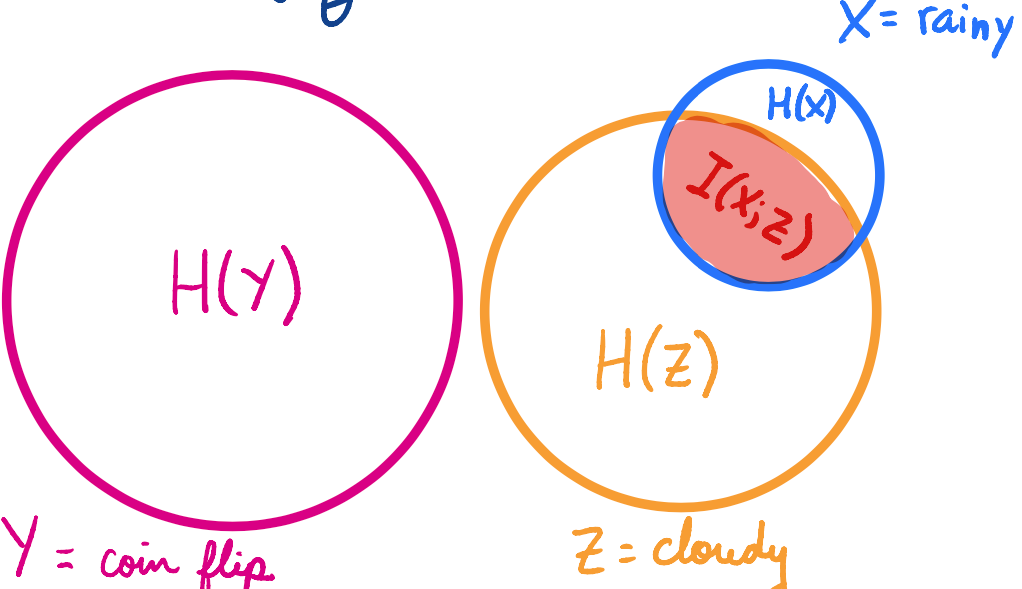 X = rainy
H(X)
I(X;Z)
H(Y)
H(Z)
Y = coin flip
Z = cloudy